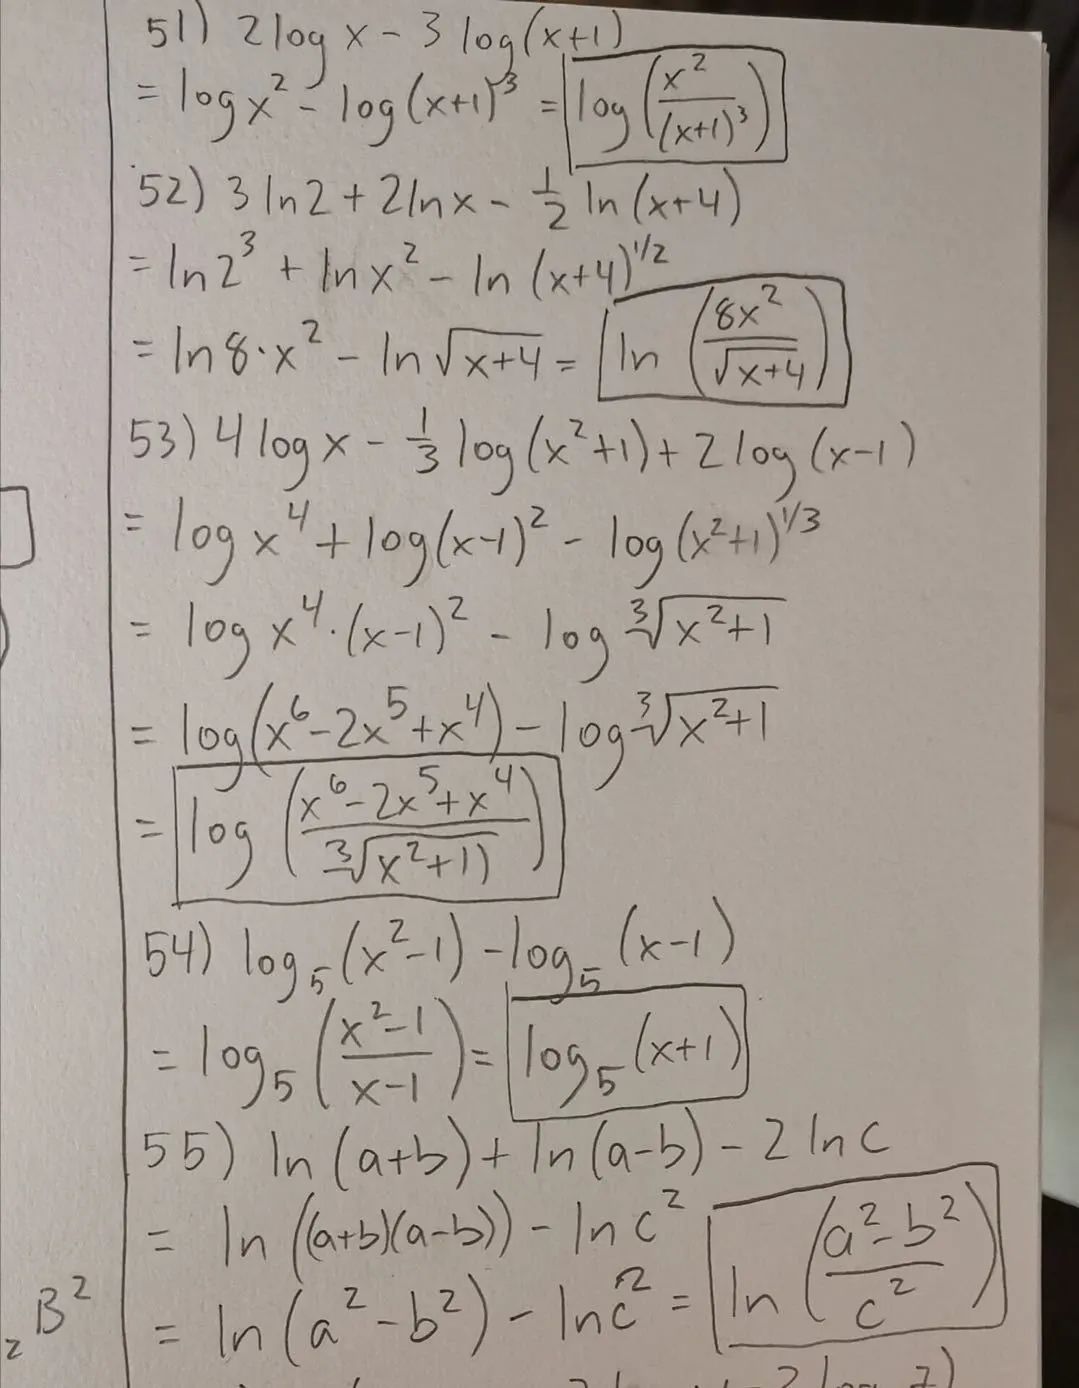 51) 2 log x - 3 log(x+1)
= log x² - log(x+1)³ = log(x²/(x+1)³)
52) 3 ln2 + 2 ln x - 1/2 ln(x+4)
= ln2³ + ln x² - ln(x+4)^1/2
= ln8·x² - ln√(x+4) = ln(8x²/√(x+4))
53) 4 log x - 1/3 log(x²+1) + 2 log(x-1)
= log x⁴ + log(x-1)² - log(x²+1)^1/3
= log x⁴·(x-1)² - log ∛(x²+1)
= log(x⁶-2x⁵+x⁴) - log ∛(x²+1)
= log(x⁶-2x⁵+x⁴/∛(x²+1))
54) log₅(x²-1) - log₅(x-1)
= log₅(x²-1/x-1) = log₅(x+1)
55) ln(a+b) + ln(a-b) - 2 ln c
= ln((a+b)(a-b)) - ln c²
= ln(a²-b²) - ln c² = ln(a²-b²/c²)
B²
2